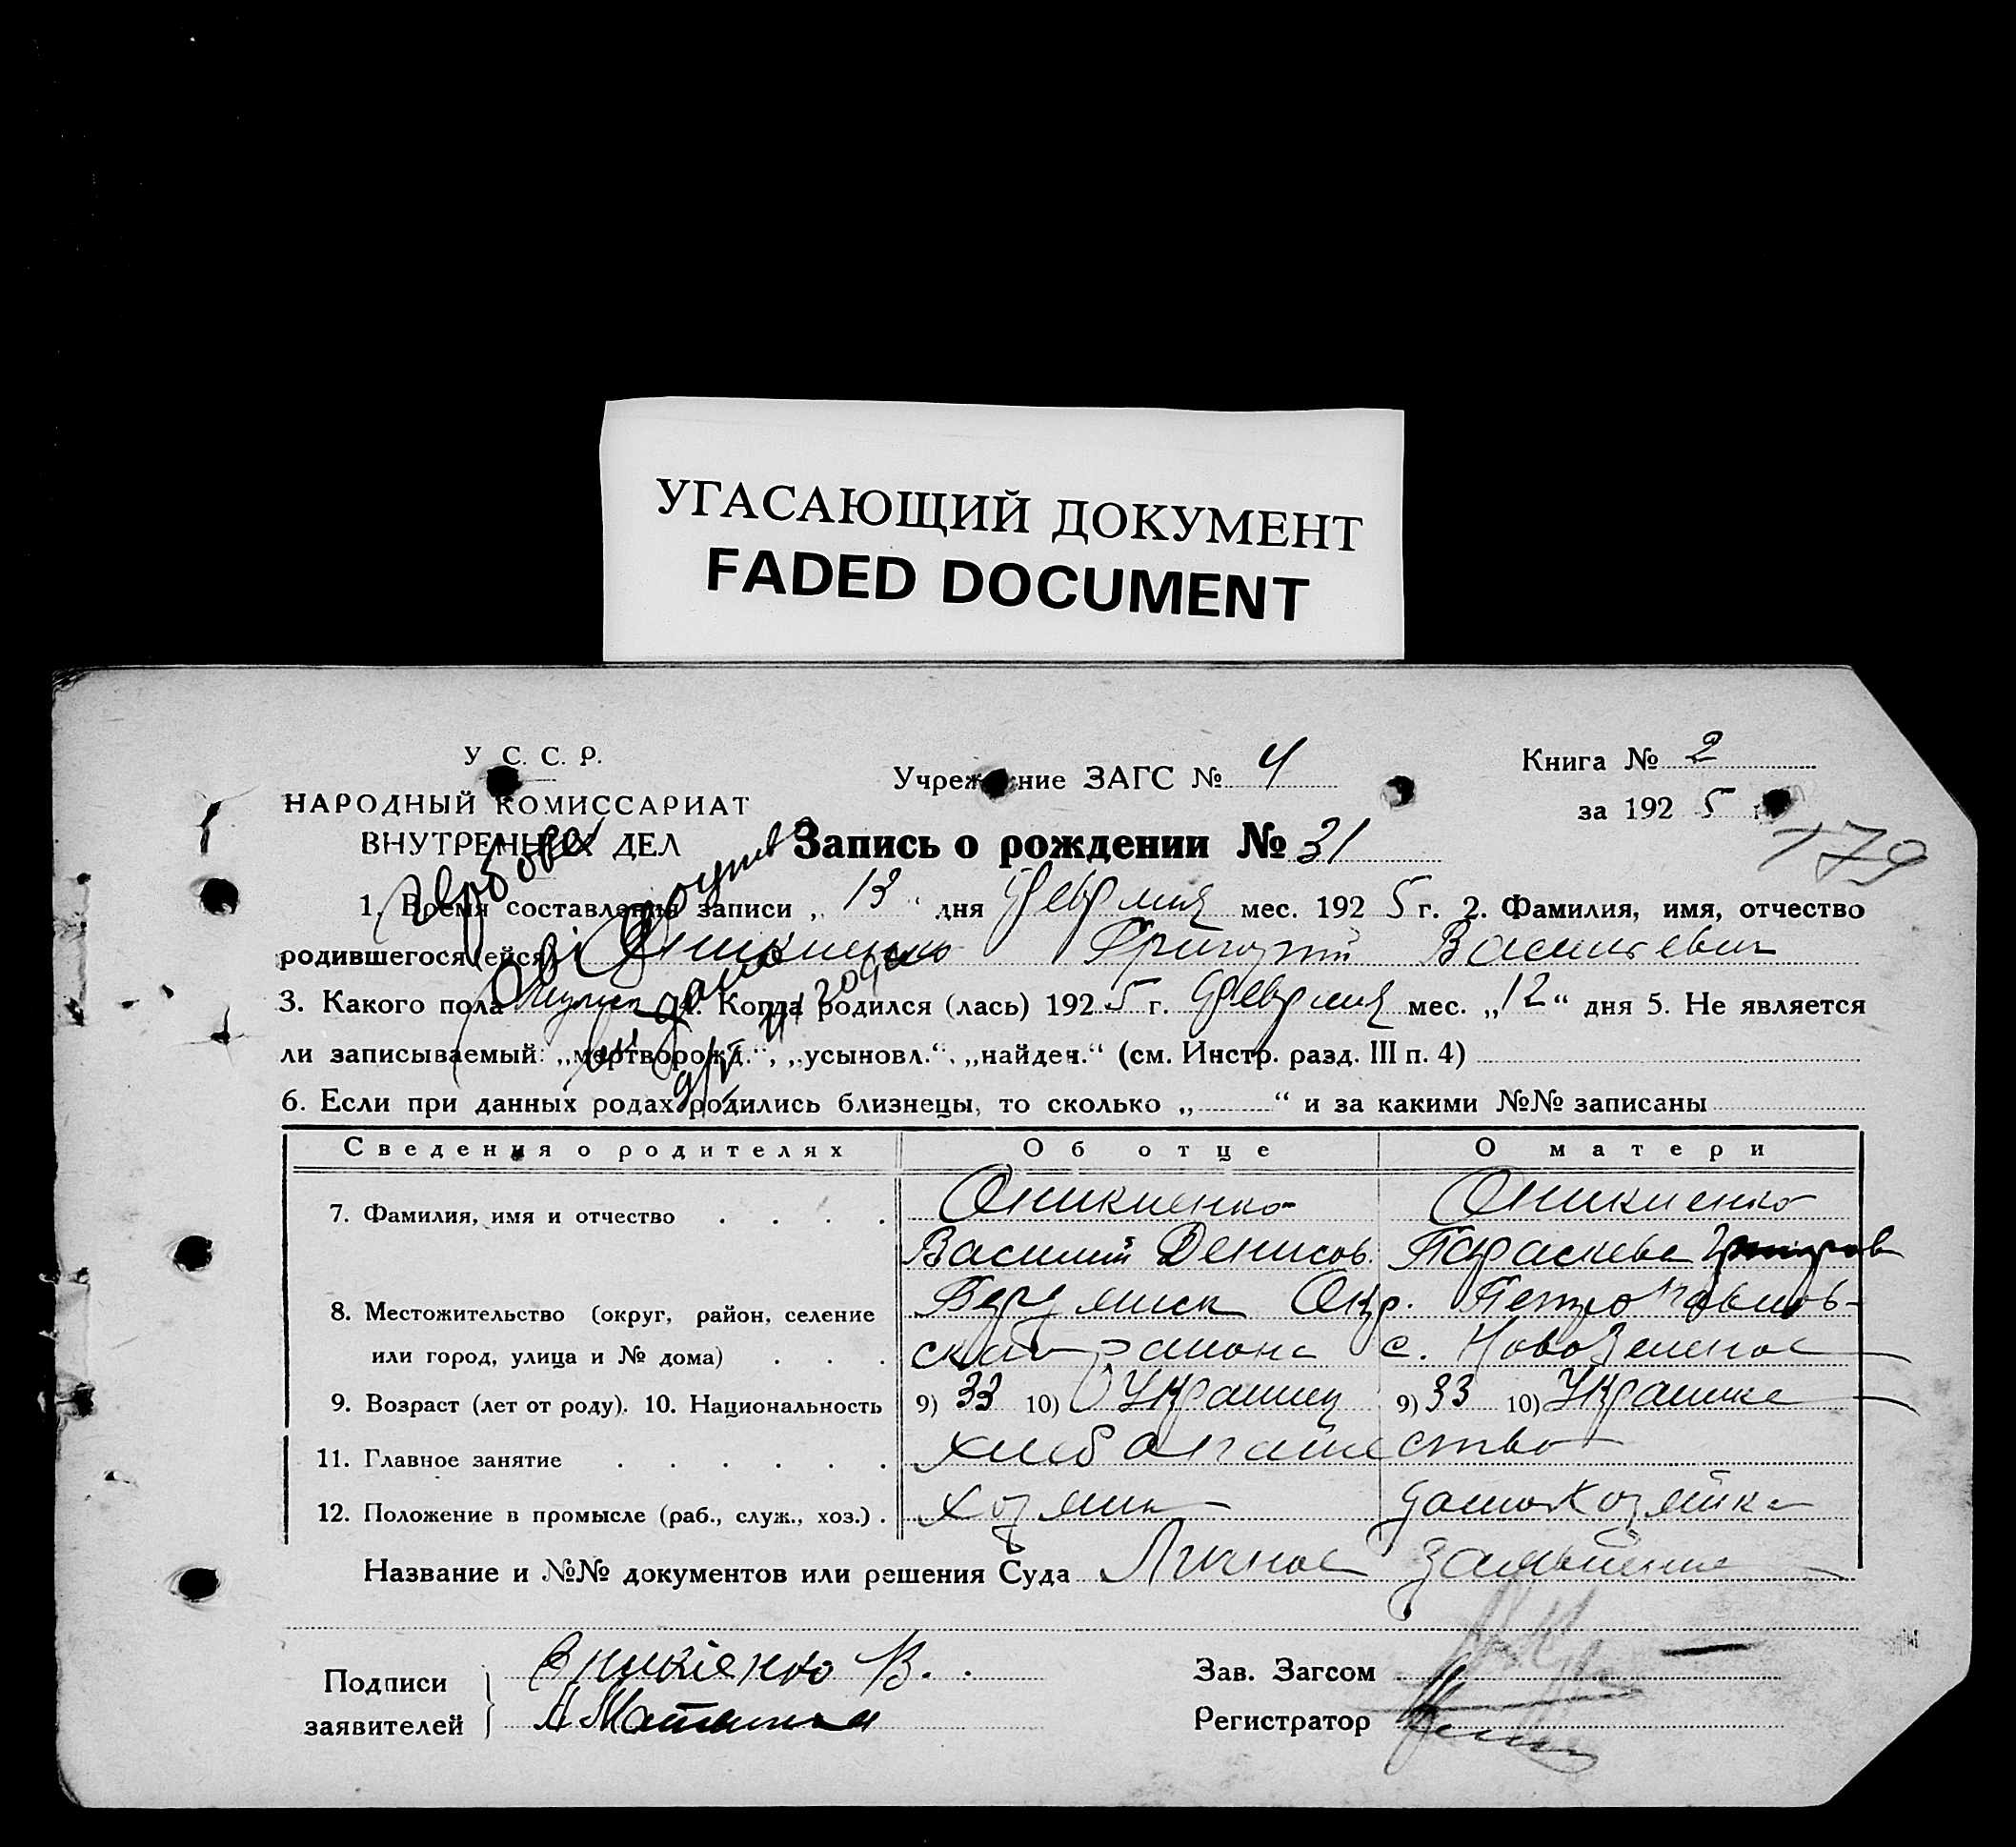 УГАСАЮЩИЙ ДОКУМЕНТ
FADED DOCUMENT
У С. С. Р.
НАРОДНЫЙ КОМИССАРИАТ
ВНУТРЕННИХ ДЕЛ
Учреждение ЗАГС № 4
Книга № 2
за 1925 г.
179
Запись о рождении № 31
1. Время составления записи „ 13 “ дня февраля мес. 1925 г. 2. Фамилия, имя, отчество
родившегося (ейся) Оникиенко Григорий Васильевич
3. Какого пола 4. Когда родился (лась) 1925 г. февраля мес. „12“ дня 5. Не является
ли записываемый: „мертворожд.“, „усыновл.“, „найден.“ (см. Инстр. разд. III п. 4)
6. Если при данных родах родились близнецы, то сколько „ “ и за какими №№ записаны
Сведения о родителях Об отце О матери
7. Фамилия, имя и отчество Оникиенко Оникиенко
Василий Денисов. Параскева
8. Местожительство (округ, район, селение Окр. Петропавлов-
или город, улица и № дома) района с. Новозеленое
9. Возраст (лет от роду). 10. Национальность 9) 33 10) Украинец 9) 33 10) Украинка
11. Главное занятие хлебопашество
12. Положение в промысле (раб., служ., хоз.) хозяин домохозяйка
Название и №№ документов или решения Суда Личное заявление
Подписи заявителей Оникіенко В.
Зав. Загсом
Регистратор